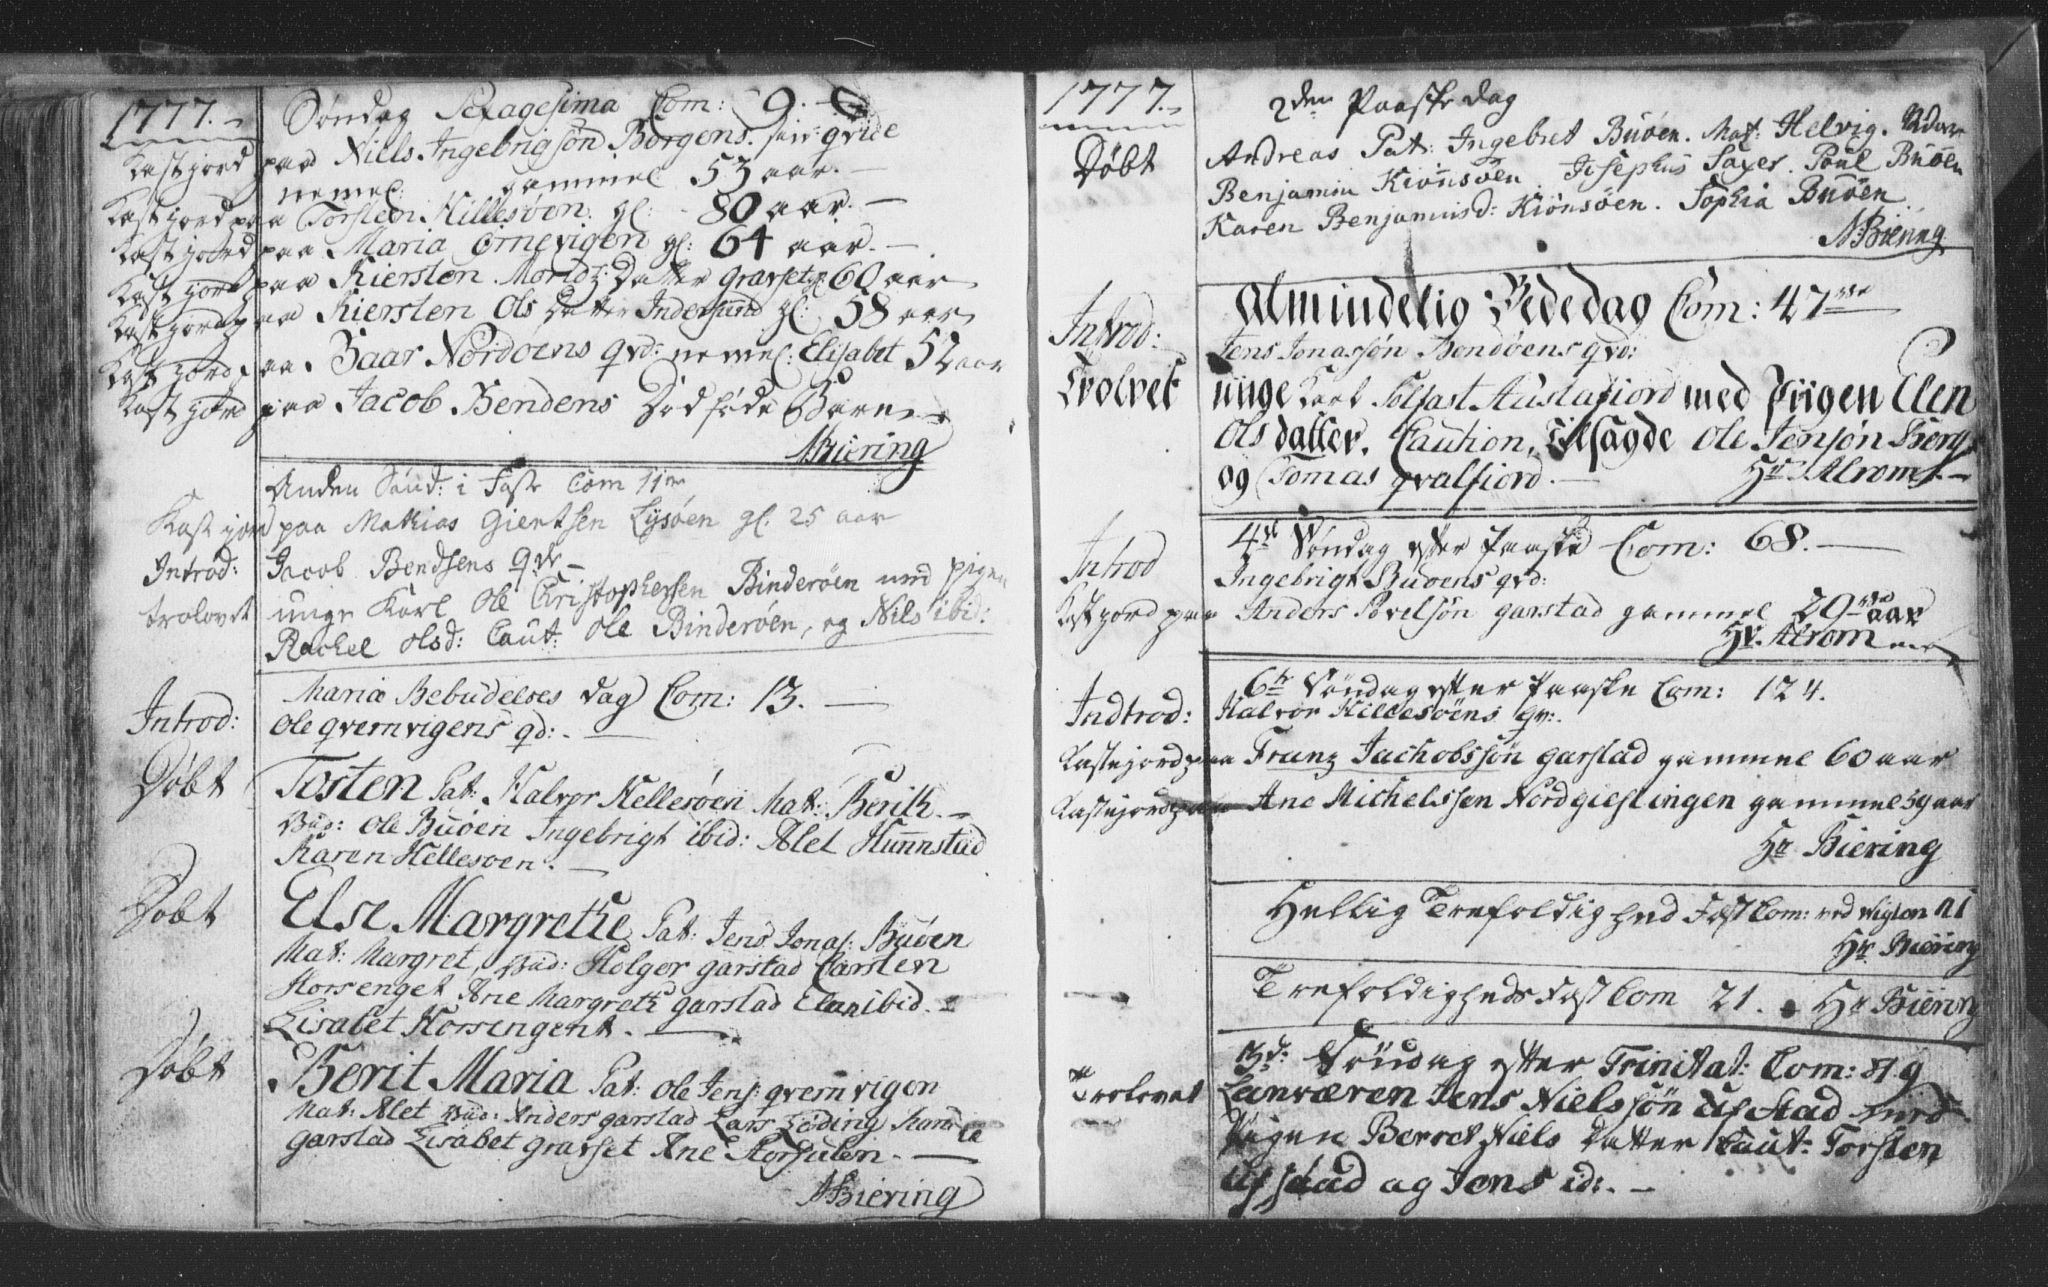 1777.
Søndag Sexagesima Com: 9.
Kast jord paa Niels Ingebrigtsøn Borgens. qvide
nemel: gammel 53 aar.
Kast jord paa Torsten Hillesøen. gl: 80 aar.
Kast jord paa Maria Ørnevigen gl: 64 aar.
Kast jord paa Kiersten Moridz: Datter Gravset gl: 60 aar
Kast jord paa Kiersten Ols Datter Indersund gl: 58 aar
Kast jord paa Baar Nordøens qvd: nemel: Elisabet 52 aar
Kast jord paa Jacob Bendens Død føde Barn
NBiering
Anden Sønd: i Faste Com 11ve
Kast jord paa Mathias Giertsen Lysøen gl. 25 aar
Introd: Jacob Bendsens qvd
trolovet unge Karl Ole Christophersen Binderøen med pigen
Rachel olsd: Caut: Ole Binderøen, og Nils ibid:
Mariæ Bebudelses dag Com: 13.
Introd: Ole qvernvigens qd:
Døbt Tosten Pat: Halvor Hellesøen Mat: Berith.
Vid: Ole Buøen Ingebrigt ibid: Alet Hunnstad
Karen Hellesøen.
Døbt Else Margrethe Pat: Jens Jonas: Buøen
Mat: Margret, Vid: Holger garstad Carsten
Horsenget Ane Margreth garstad Elen ibid.
Lisabet Horsengent.
Døbt Berit Maria Pat: Ole Jens: qvernvigen
Mat: Alet Vid: Anders garstad Lars Løding
garstad Lisabet gravset Ane Storsalen.
NBiering
1777.
2den Paaske dag
Døbt Andreas Pat: Ingebret Buøen. Mat: Helvig.
Benjamin Kiønsøen Josephus Saxer. Poul Buøen
Karen Benjaminsd: Kiønsøen. Sophia Buøen.
NBiering
Almindelig Bededag Com: 47
Introd: Jens Jonassøn Hendøens qvd:
Trolovet unge Karl Solfast Austafiord med Piigen Elen
Ols datter. Caution, tilsagde Ole Jensøn Berg
og Tomas qvalfiord. Hr Alrom
4de Søndag efter Paaske Com: 68.
Introd Ingebrigt Buøens qvd:
Kast jord paa Anders Povelsøn garstad gammel 20 aar
Hr. Alrom
6te Søndag efter Paaske Com: 124.
Indtrod: Halvor Hillesøens qv:
Kastejord paa Franz Jachobssøn garstad gammel 60 aar
Kastejord paa Ane Michelssen Nordgieslingen gammel 59 aar
Hr Biering
Hellig Trefoldighed Fest Com: ved vigten 21
Hr Biering
Trefoldigheds Fest Com 21. Hr Biering
3de: Søndag efter Trinitat: Com: 819
Trolovet Lanværen Jens Nielssøn Ufstad med
Pigen Berret Niels Datter Caut: Torsten
Ufstad og Jens id: